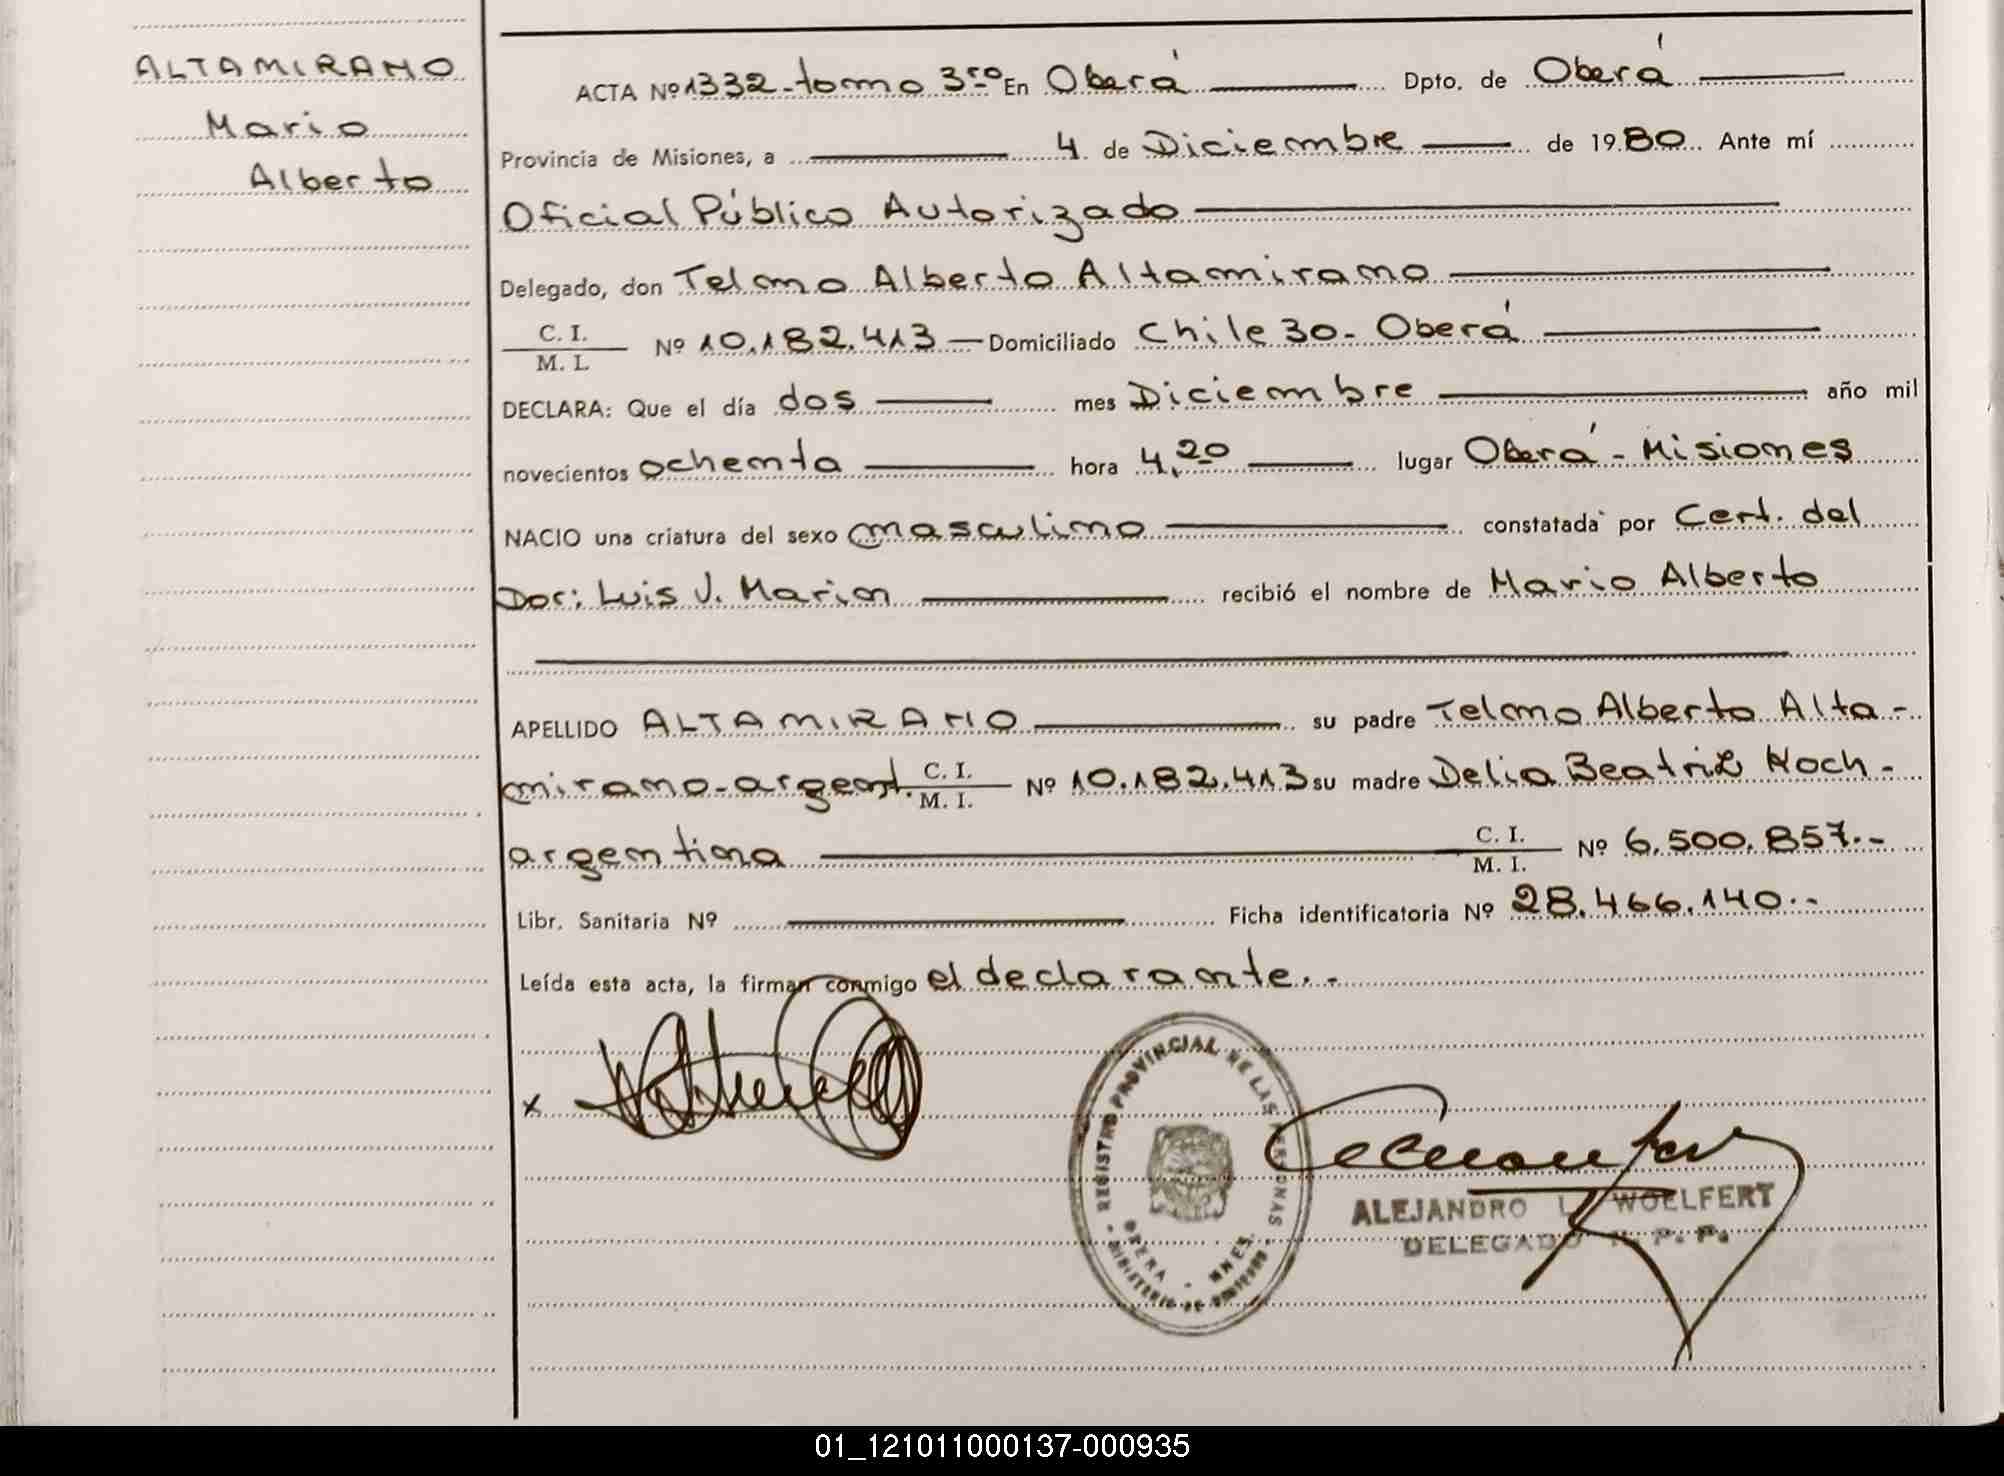 ALTAMIRANO
Mario
Alberto
ACTA Nº 1332-tomo 3ro En Oberá Dpto. de Oberá
Provincia de Misiones, a 4 de Diciembre de 1980. Ante mí
Oficial Público Autorizado
Delegado, don Telmo Alberto Altamirano
C. I.
M. I. Nº 10.182.413 Domiciliado Chile 30 - Oberá
DECLARA: Que el día dos mes Diciembre año mil
novecientos ochenta hora 4,20 lugar Oberá - Misiones
NACIO una criatura del sexo masculino constatada por Cert. del
Doc: Luis J. Marion recibió el nombre de Mario Alberto
APELLIDO ALTAMIRANO su padre Telmo Alberto Alta-
mirano-argent. C. I. M. I. Nº 10.182.413 su madre Delia Beatriz Koch -
argentina C. I. M. I. Nº 6.500.857.-
Libr. Sanitaria Nº Ficha identificatoria Nº 28.466.140.-
Leída esta acta, la firman conmigo el declarante.-
x
REGISTRO PROVINCIAL DE LAS PERSONAS
OBERA - MNES.
MINISTERIO DE GOBIERNO
ALEJANDRO L. WOELFERT
DELEGADO R. P. P.
01_121011000137-000935